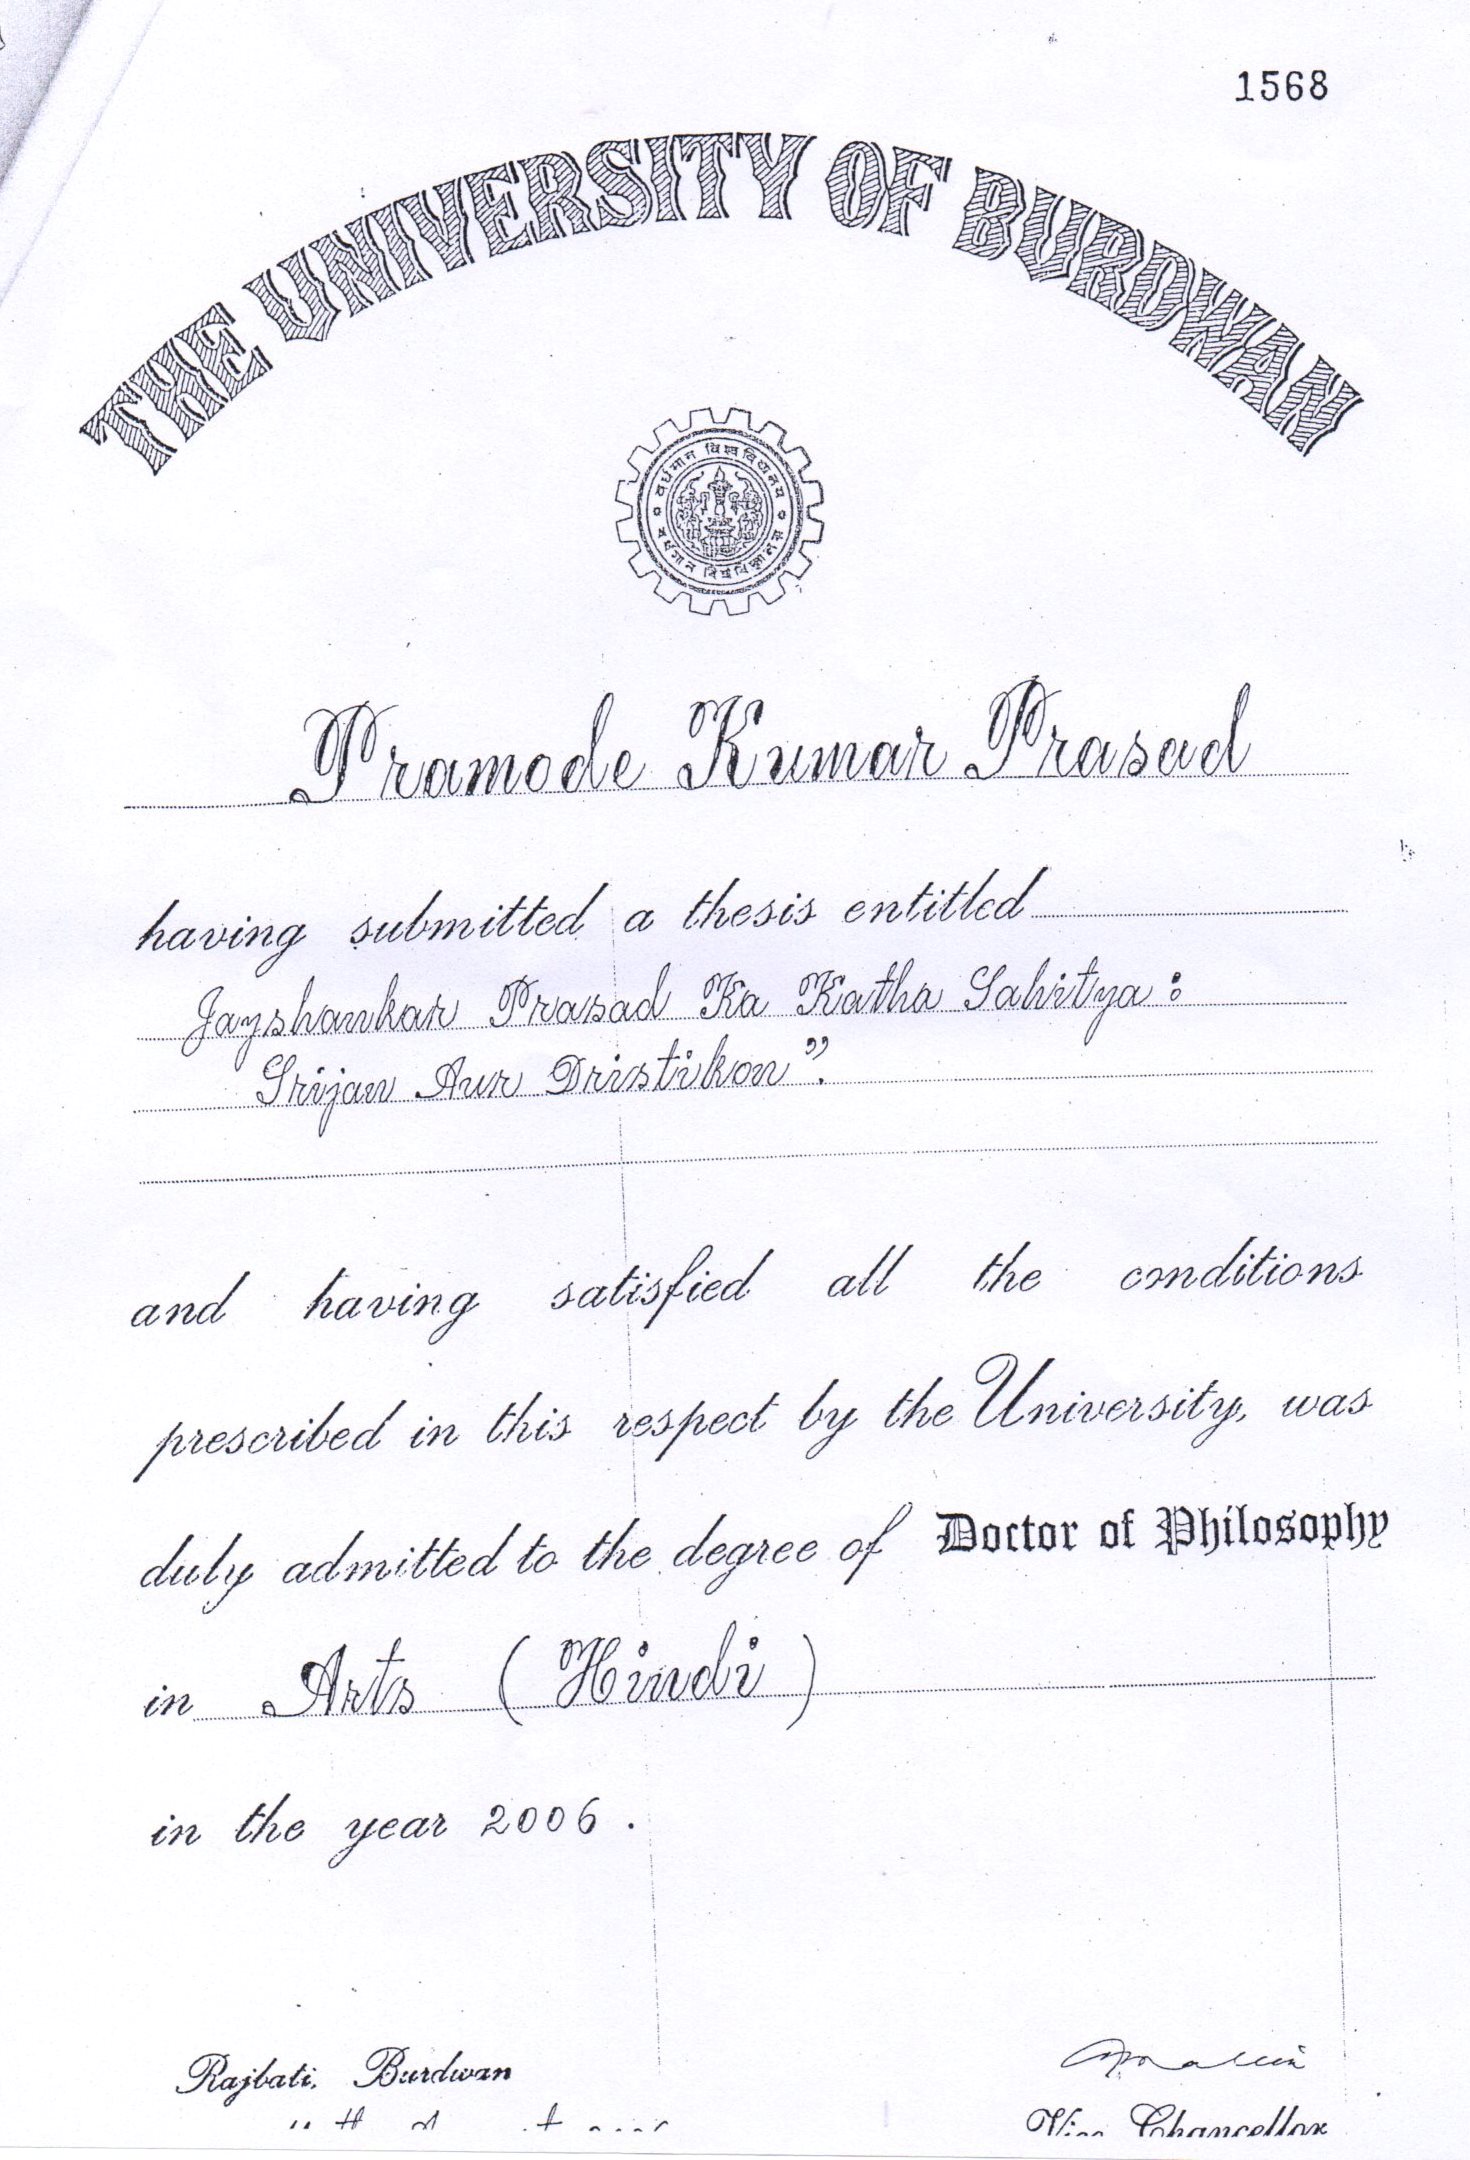 1568
THE UNIVERSITY OF BURDWAN
वर्धमान विश्वविद्यालय
Pramode Kumar Prasad
having submitted a thesis entitled
Jayshankar Prasad Ka Katha Sahitya :
Srijan Aur Dristikon”.
and having satisfied all the conditions
prescribed in this respect by the University, was
duly admitted to the degree of Doctor of Philosophy
in Arts (Hindi)
in the year 2006.
Rajbati, Burdwan
Vice Chancellor